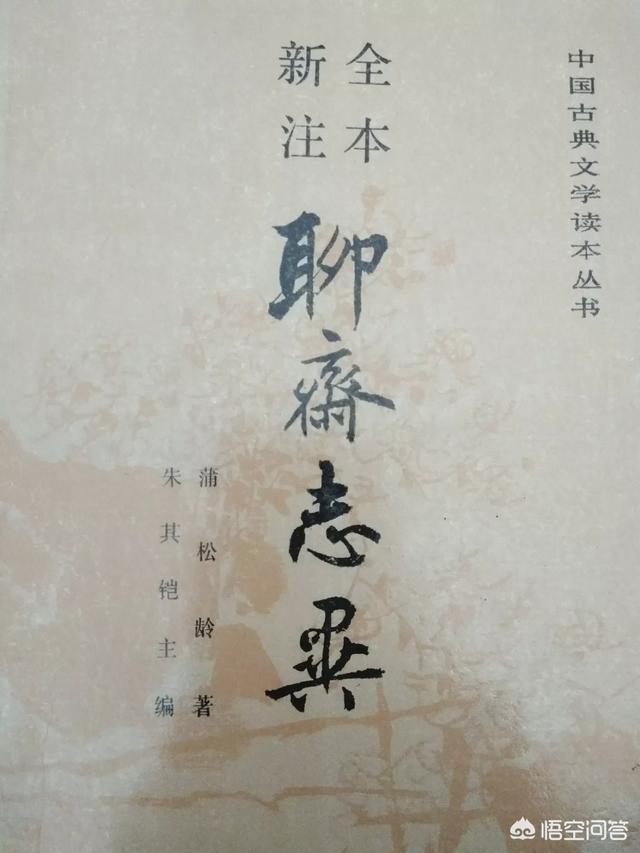 中国古典文学读本丛书
全本
新注
聊齋志異
蒲松龄著
朱其铠主编
悟空问答